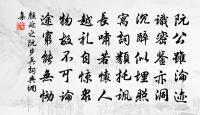 阮公雖淪跡
識密鑒亦洞
沉醉似埋照
寓詞類托諷
長嘯若懷人
越禮自驚眾
物故不可論
途窮能無慟
顏延之阮步兵詞典網
集